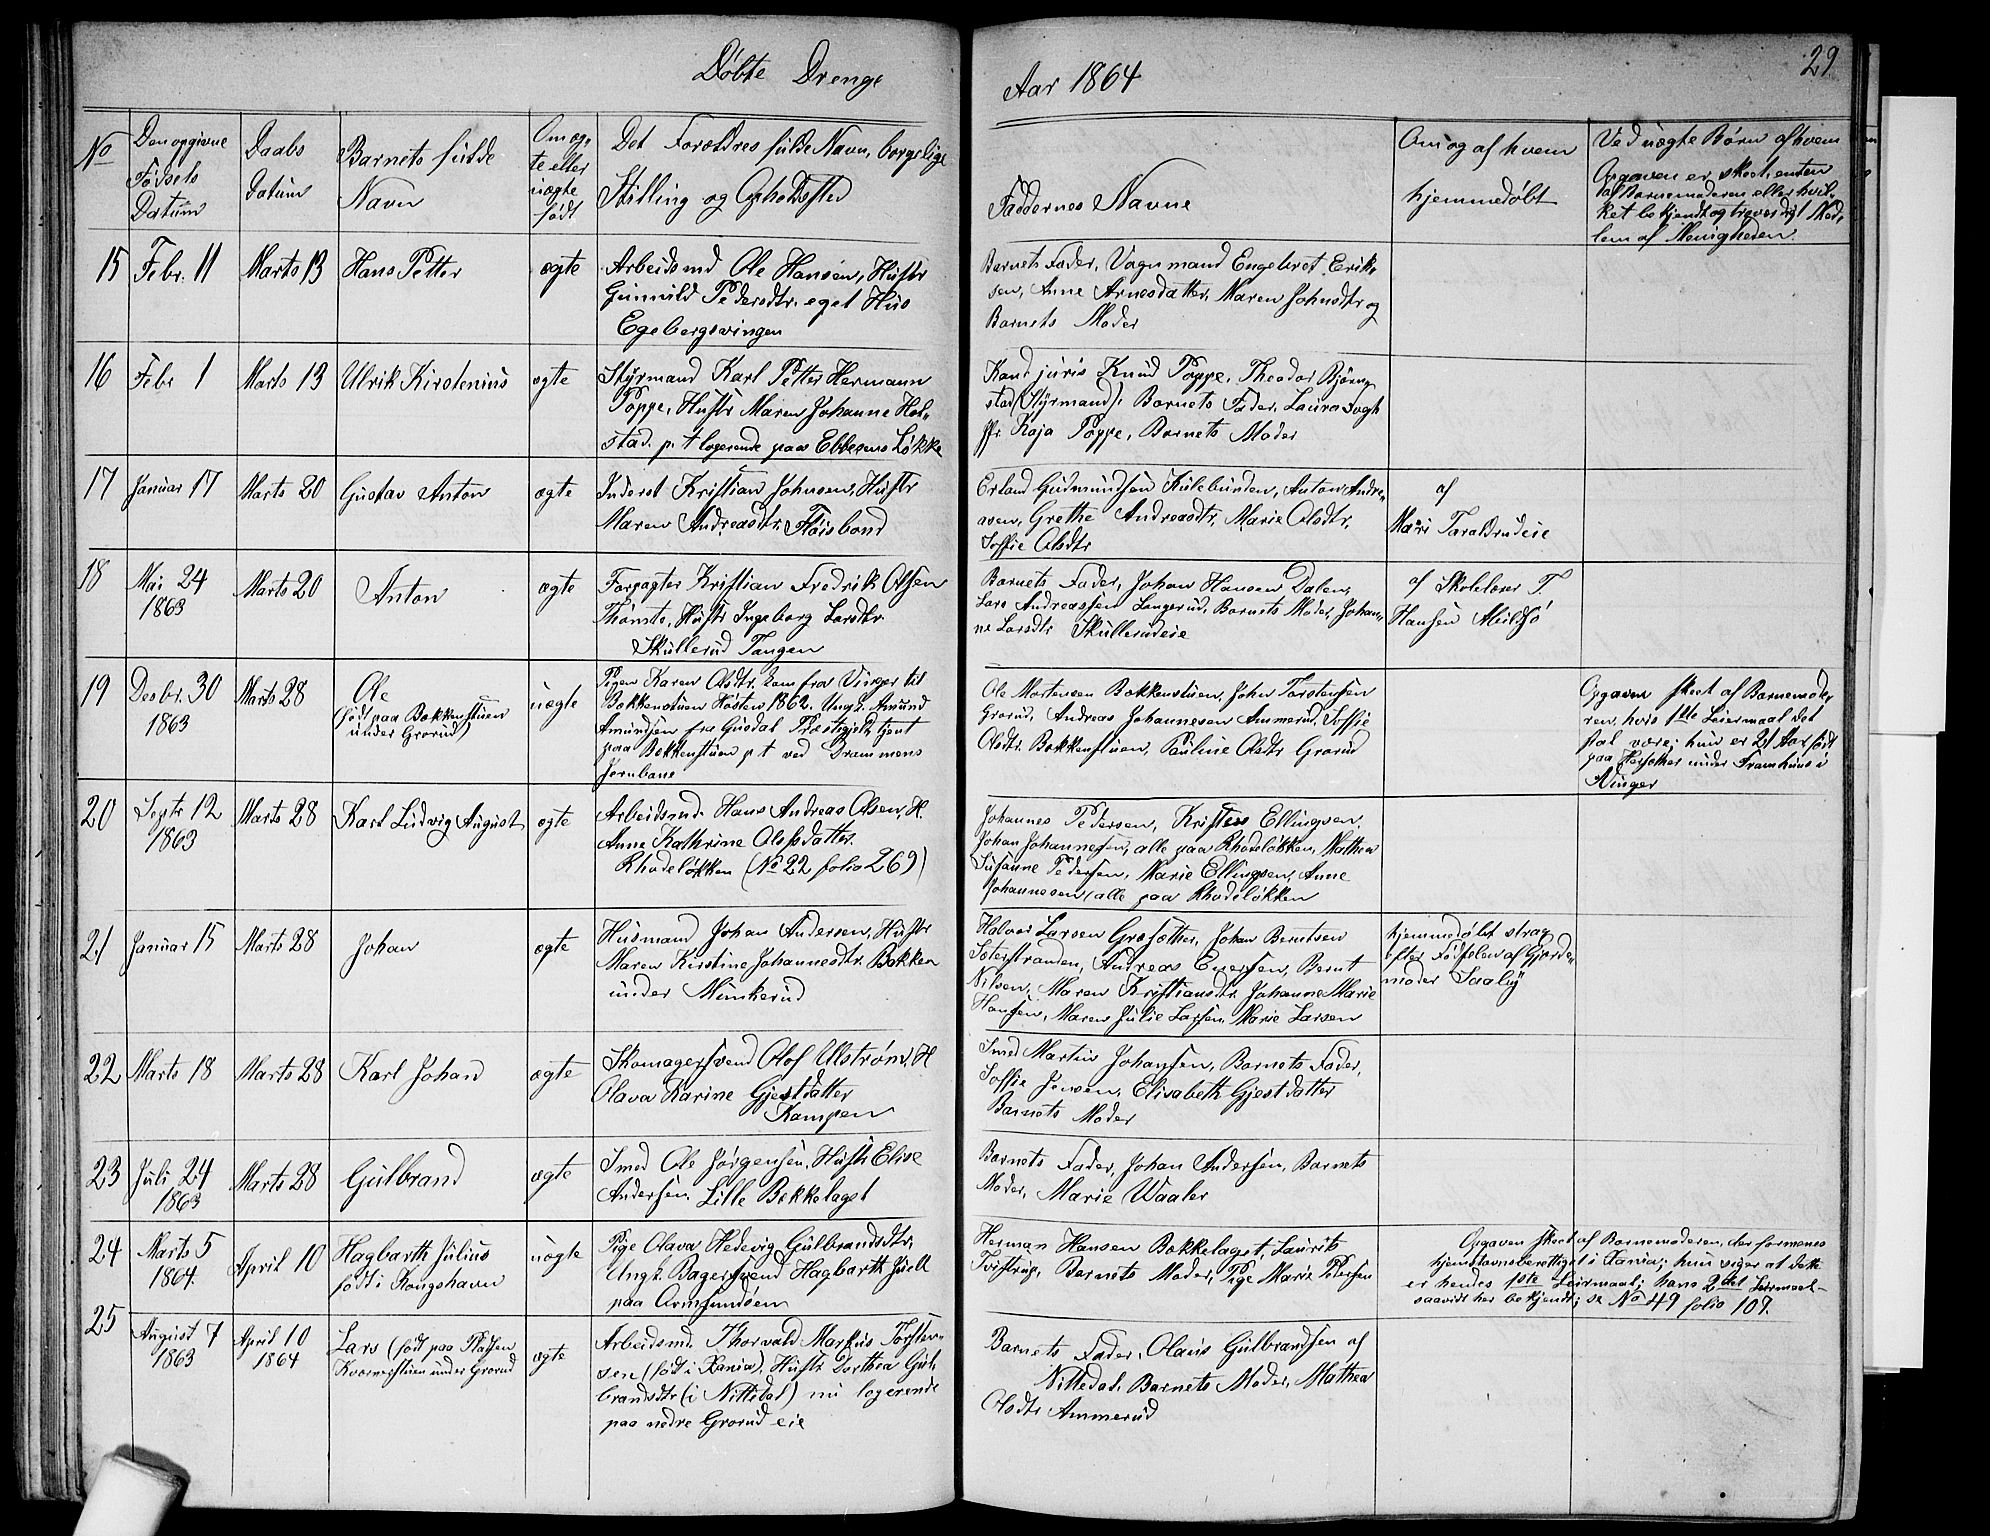 Døbte Drenge
Aar 1864
29
No
Den opgivne
Fødsels
Datum
Daabs
Datum
Barnets fulde
Navn
Om æg-
te eller
uægte
født
Det Forældres fulde Navn, borgelige
Stilling og Opholdssted
Faddernes Navne
Om og af hvem
hjemmedøbt
Ved uægte Børn af hvem
Opgaven er skeet, enten
af Barnemoderen eller hvil-
ket bekjendt og troværdigt Med-
lem af Menigheden.
15 Febr. 11 Marts 13 Hans Petter ægte
Arbeidsmd Ole Hansen, Hustr
Gunnild Pedersdtr. eget Hus
Egebergsvingen
Barnets Fader, Vognmand Engebret Erik-
sen, Anne Arnesdatter, Maren Johnsdtr og
Barnets Moder
16 Febr 1 Marts 13 Ulrik Kirstenius ægte
Styrmand Karl Petter Hermann
Poppe, Hustr Maren Johanne Hol-
stad. p. t logerende paa Ebbesens Løkke
Kand juris Knud Poppe, Theodor Bjørn-
stad (Styrmand), Barnets Fader, Laura Fogh
Kaja Poppe, Barnets Moder
17 Januar 17 Marts 20 Gustav Anton ægte
Inderst Kristian Johnsen, Hustr
Maren Andreasdtr, Fløisbond
Erland Gudmundsen Kulebunden, Anton Andre-
asen, Grethe Andreasdtr, Marie Olsdtr,
Soffie Olsdtr
af
Mari Taraldrudeie
18 Mai 24
1863
Marts 20 Anton ægte
Forpagter Kristian Fredrik Olsen
Thomte, Hustr Ingeborg Larsdtr.
Skullerud Tangen
Barnets Fader, Johan Hansen Dalen,
Lars Andreassen Langerud, Barnets Moder, Johan-
ne Larsdtr Skullerudeie
af Skolelærer T.
Hansen Abildsø
19 Desbr. 30
1863
Marts 28 Ole
(født paa Bakkenstuen
under Grorud)
uægte
Pigen Karen Olsdtr. kom fra Vinger til
Bakkenstuen Høsten 1862. Ungk. Amund
Amundsen fra Gusdal Præstegjeld, tjent
paa Bakkenstuen p t ved Drammens
Jernbane
Ole Mortensen Bakkenstuen, John Torstensen
Grorud, Andreas Johannesen Ammerud, Soffie
Olsdtr. Bakkenstuen, Pauline Olsdtr Grorud
Opgaven skeet af Barnemode-
ren, hvis 1ste Leiermaal det
skal være; hun er 21 Aar født
paa under Framhuus i
Vinger
20 Septr 12
1863
Marts 28 Karl Ludvig August ægte
Arbeidsmd. Hans Andreas Olsen, H.
Anne Kathrine Olafsdatter.
Rhodeløkken (No 22 folio 269)
Johannes Pedersen, Kristen Ellingsen,
Johan Johannesen, alle paa Rhodeløkken, Mathea
Susanne Pedersen, Marie Ellingsen, Anne
Johannesen, alle paa Rhodeløkken
21 Januar 15 Marts 28 Johan ægte
Husmand Johan Andersen, Hustr
Maren Kirstine Johannesdtr. Bakken
under Munkerud
Halvor Larsen Grosætter, Johan Berntsen
Sæterstranden, Andreas Evensen, Bernt
Nilsen, Maren Kristiansdtr, Johanne Marie
Hansen, Maren Julie Larsen, Marie Larsen
hjemmedøbt strax
efter Fødselen af Gjorde-
moder Saaby
22 Marts 18 Marts 28 Karl Johan ægte
Skomagersvend Olof Ullstrøm, H
Olava Karine Gjestdatter
Kampen
Smed Martin Johansen, Barnets Fader,
Soffie Jensen, Elisabeth Gjestdatter
Barnets Moder
23 Juli 24
1863
Marts 28 Gulbrand ægte
Smed Ole Jørgensen, Hustr Elise
Andersen. Lille Bækkelaget
Barnets Fader, Johan Andersen, Barnets
Moder, Marie Waaler
24 Marts 5
1864.
April 10 Hagbarth Julius
født i Kongshavn
uægte
Pige Olava Hedevig Gulbrandsdtr,
Ungk. Bagersvend Hagbarth Juell
paa Ormsundsøen
Herman Hansen Bækkelaget, Laurits
Tvistrup, Barnets Moder, Pige Marie Pedersen
Opgaven skeet af Barnemoderen, der formenes
hjemstavnsberettiget i Xania; hun siger at dette
er hendes 1ste Leiermaal; hans 2det Leiermaal
saavidt her bekjendt; se No 49 folio 107.
25 August 7
1863
April 10
1864
Lars (født paa Pladsen
Kværnstuen under Grorud
ægte
Arbeidsmd. Thorvald Markus Torsten-
sen (født i Xania), Hustr Dorthea Gul-
brandsdtr (i Nittedal) nu logerende
paa nedre Grorud eie
Barnets Fader, Olaus Gulbrandsen af
Nittedal. Barnets Moder, Mathea
Olsdtr Ammerud